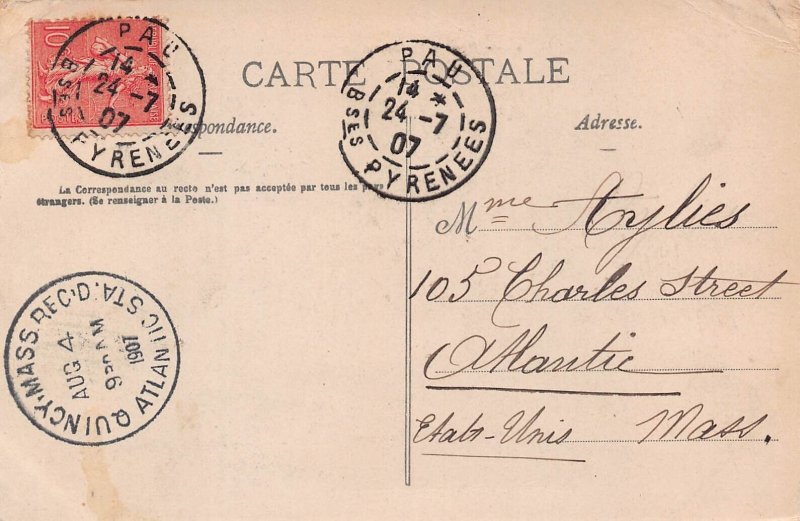 10
PAU
14 *
24 -7
07
BSES PYRENEES
PAU
14 *
24 -7
07
BSES PYRENEES
CARTE POSTALE
spondance.
Adresse.
La Correspondance au recto n'est pas acceptée par tous les pays
étrangers. (Se renseigner à la Poste.)
Mme Aylies
105 Charles Street
Atlantic
Etats-Unis Mass.
QUINCY, MASS. REC'D. ATLANTIC STA.
AUG 4
930AM
1907